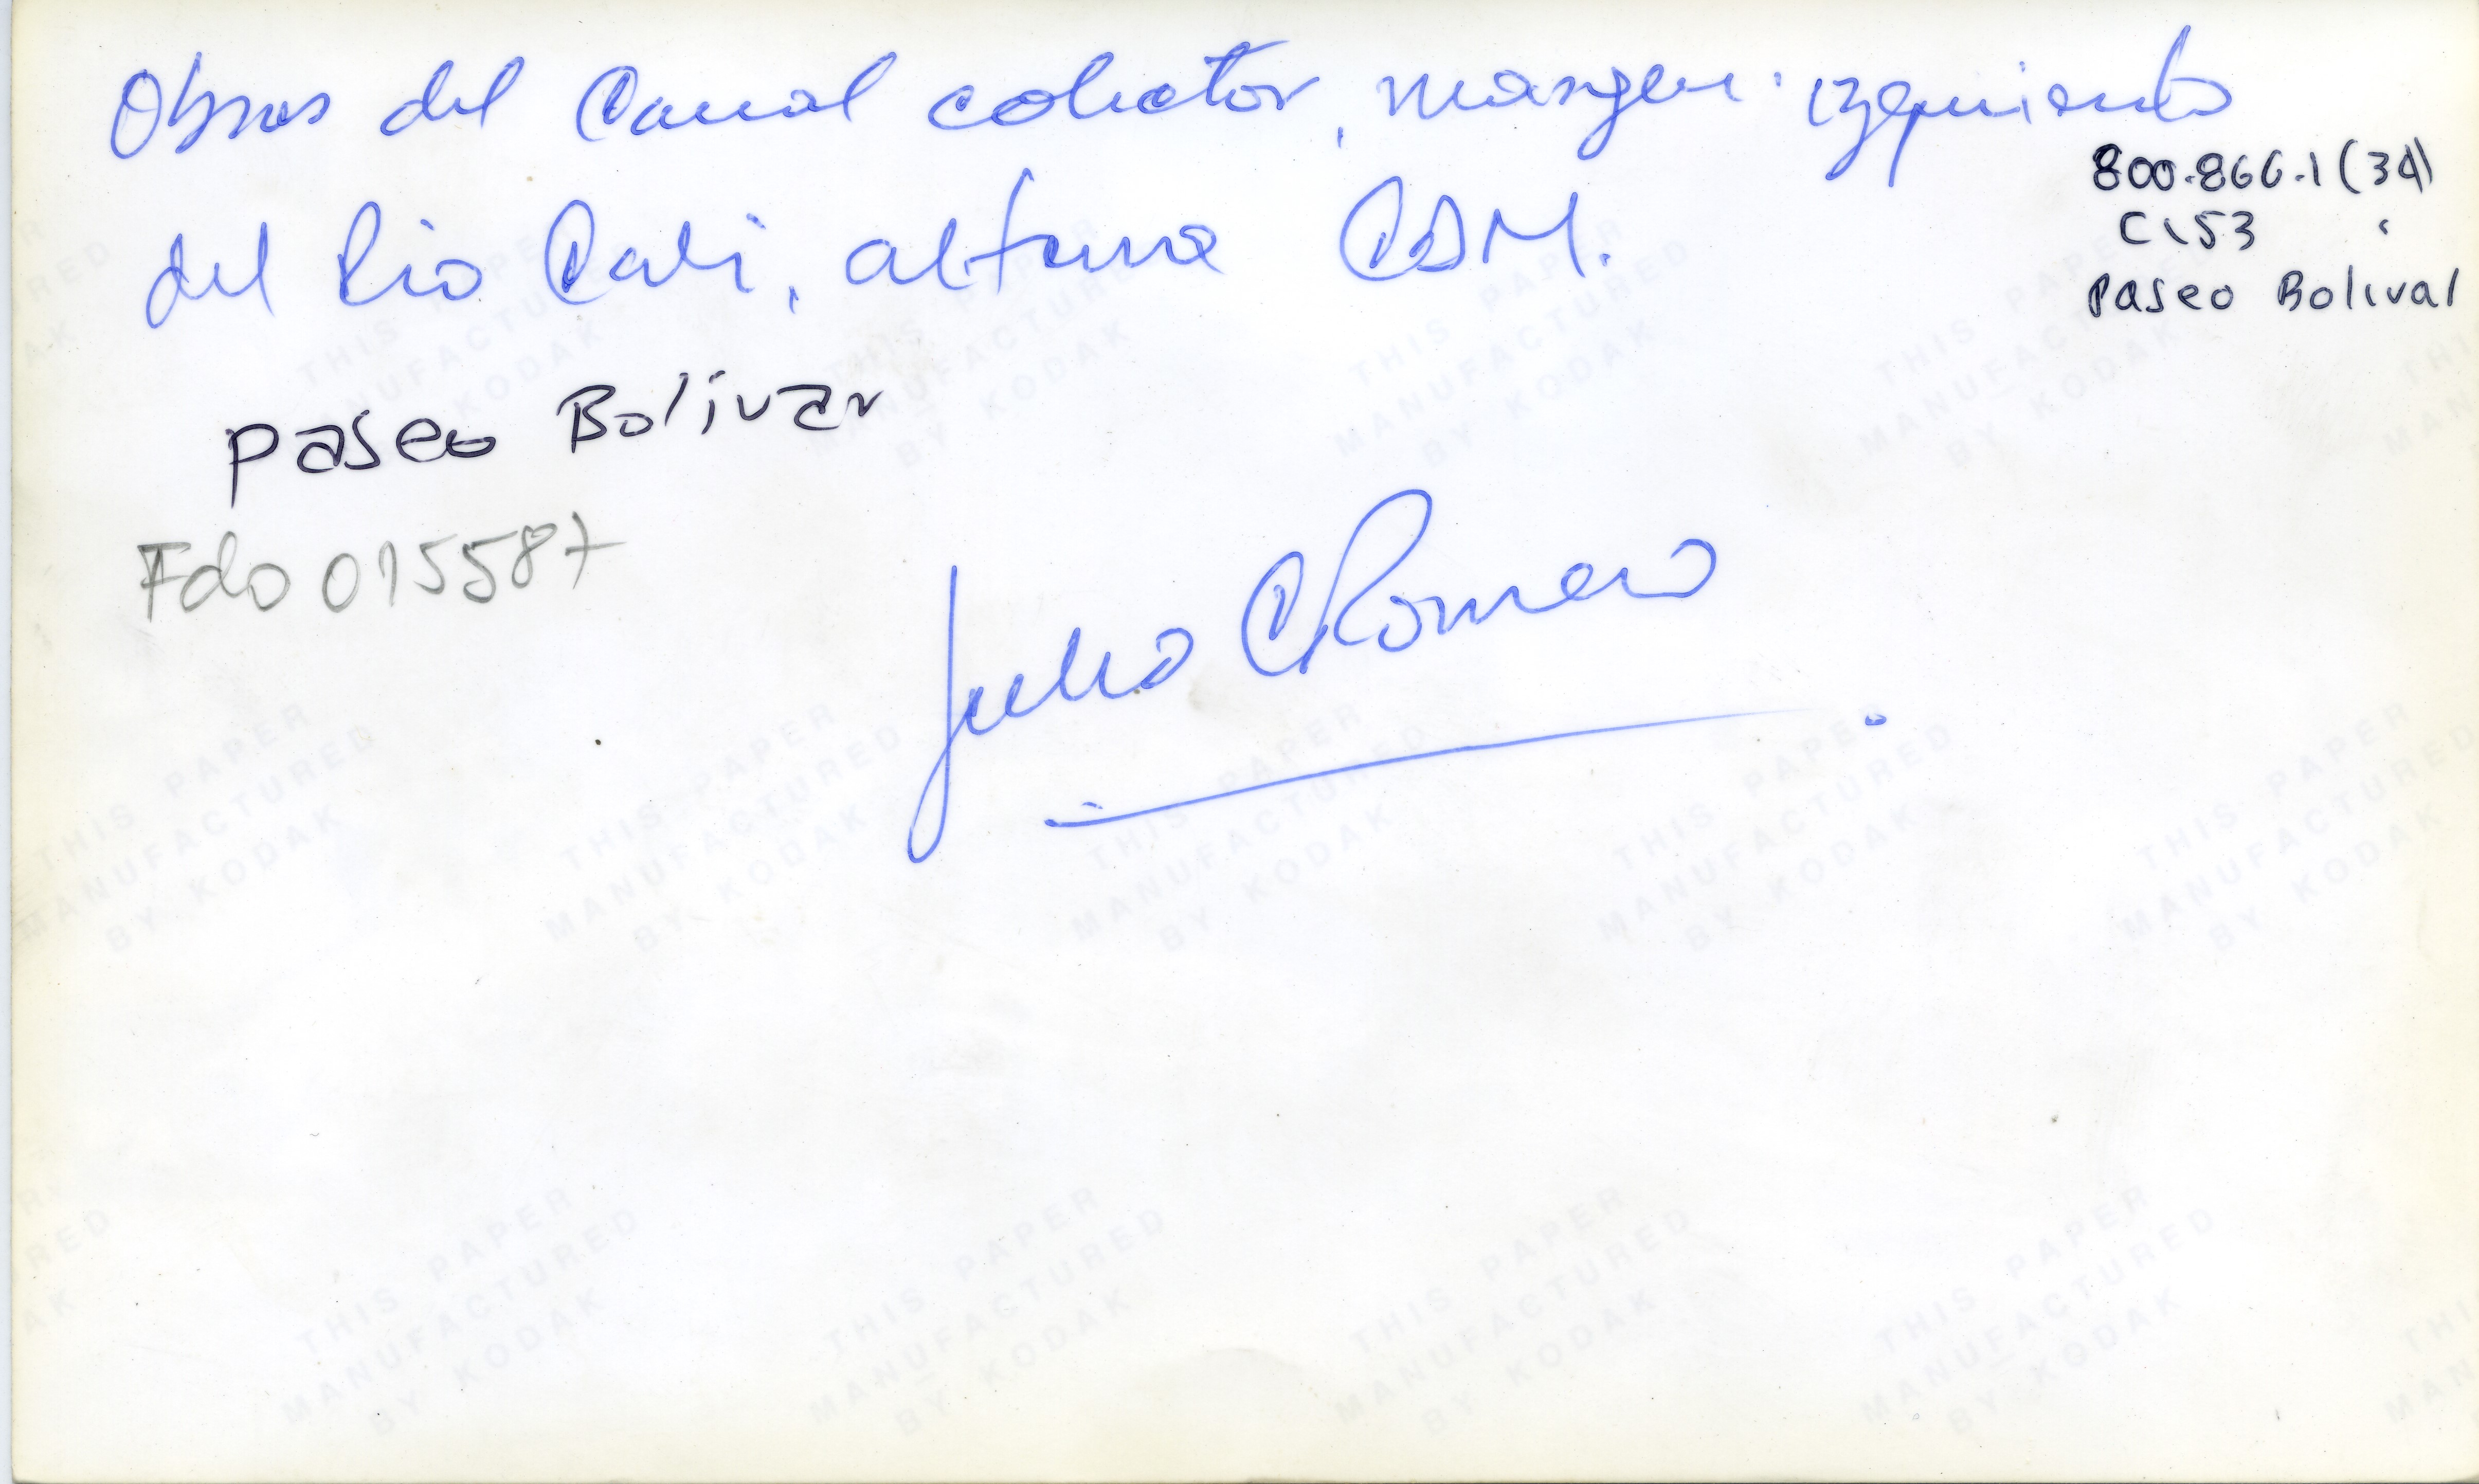 Obras del Canal colector, margen izquierdo
del Rio Cali, altura CDM.
800.866.1(34)
C153
Paseo Bolival
Paseo Bolívar
Fdo 015587
Julio C Romero
THIS PAPER
MANUFACTURED
BY KODAK